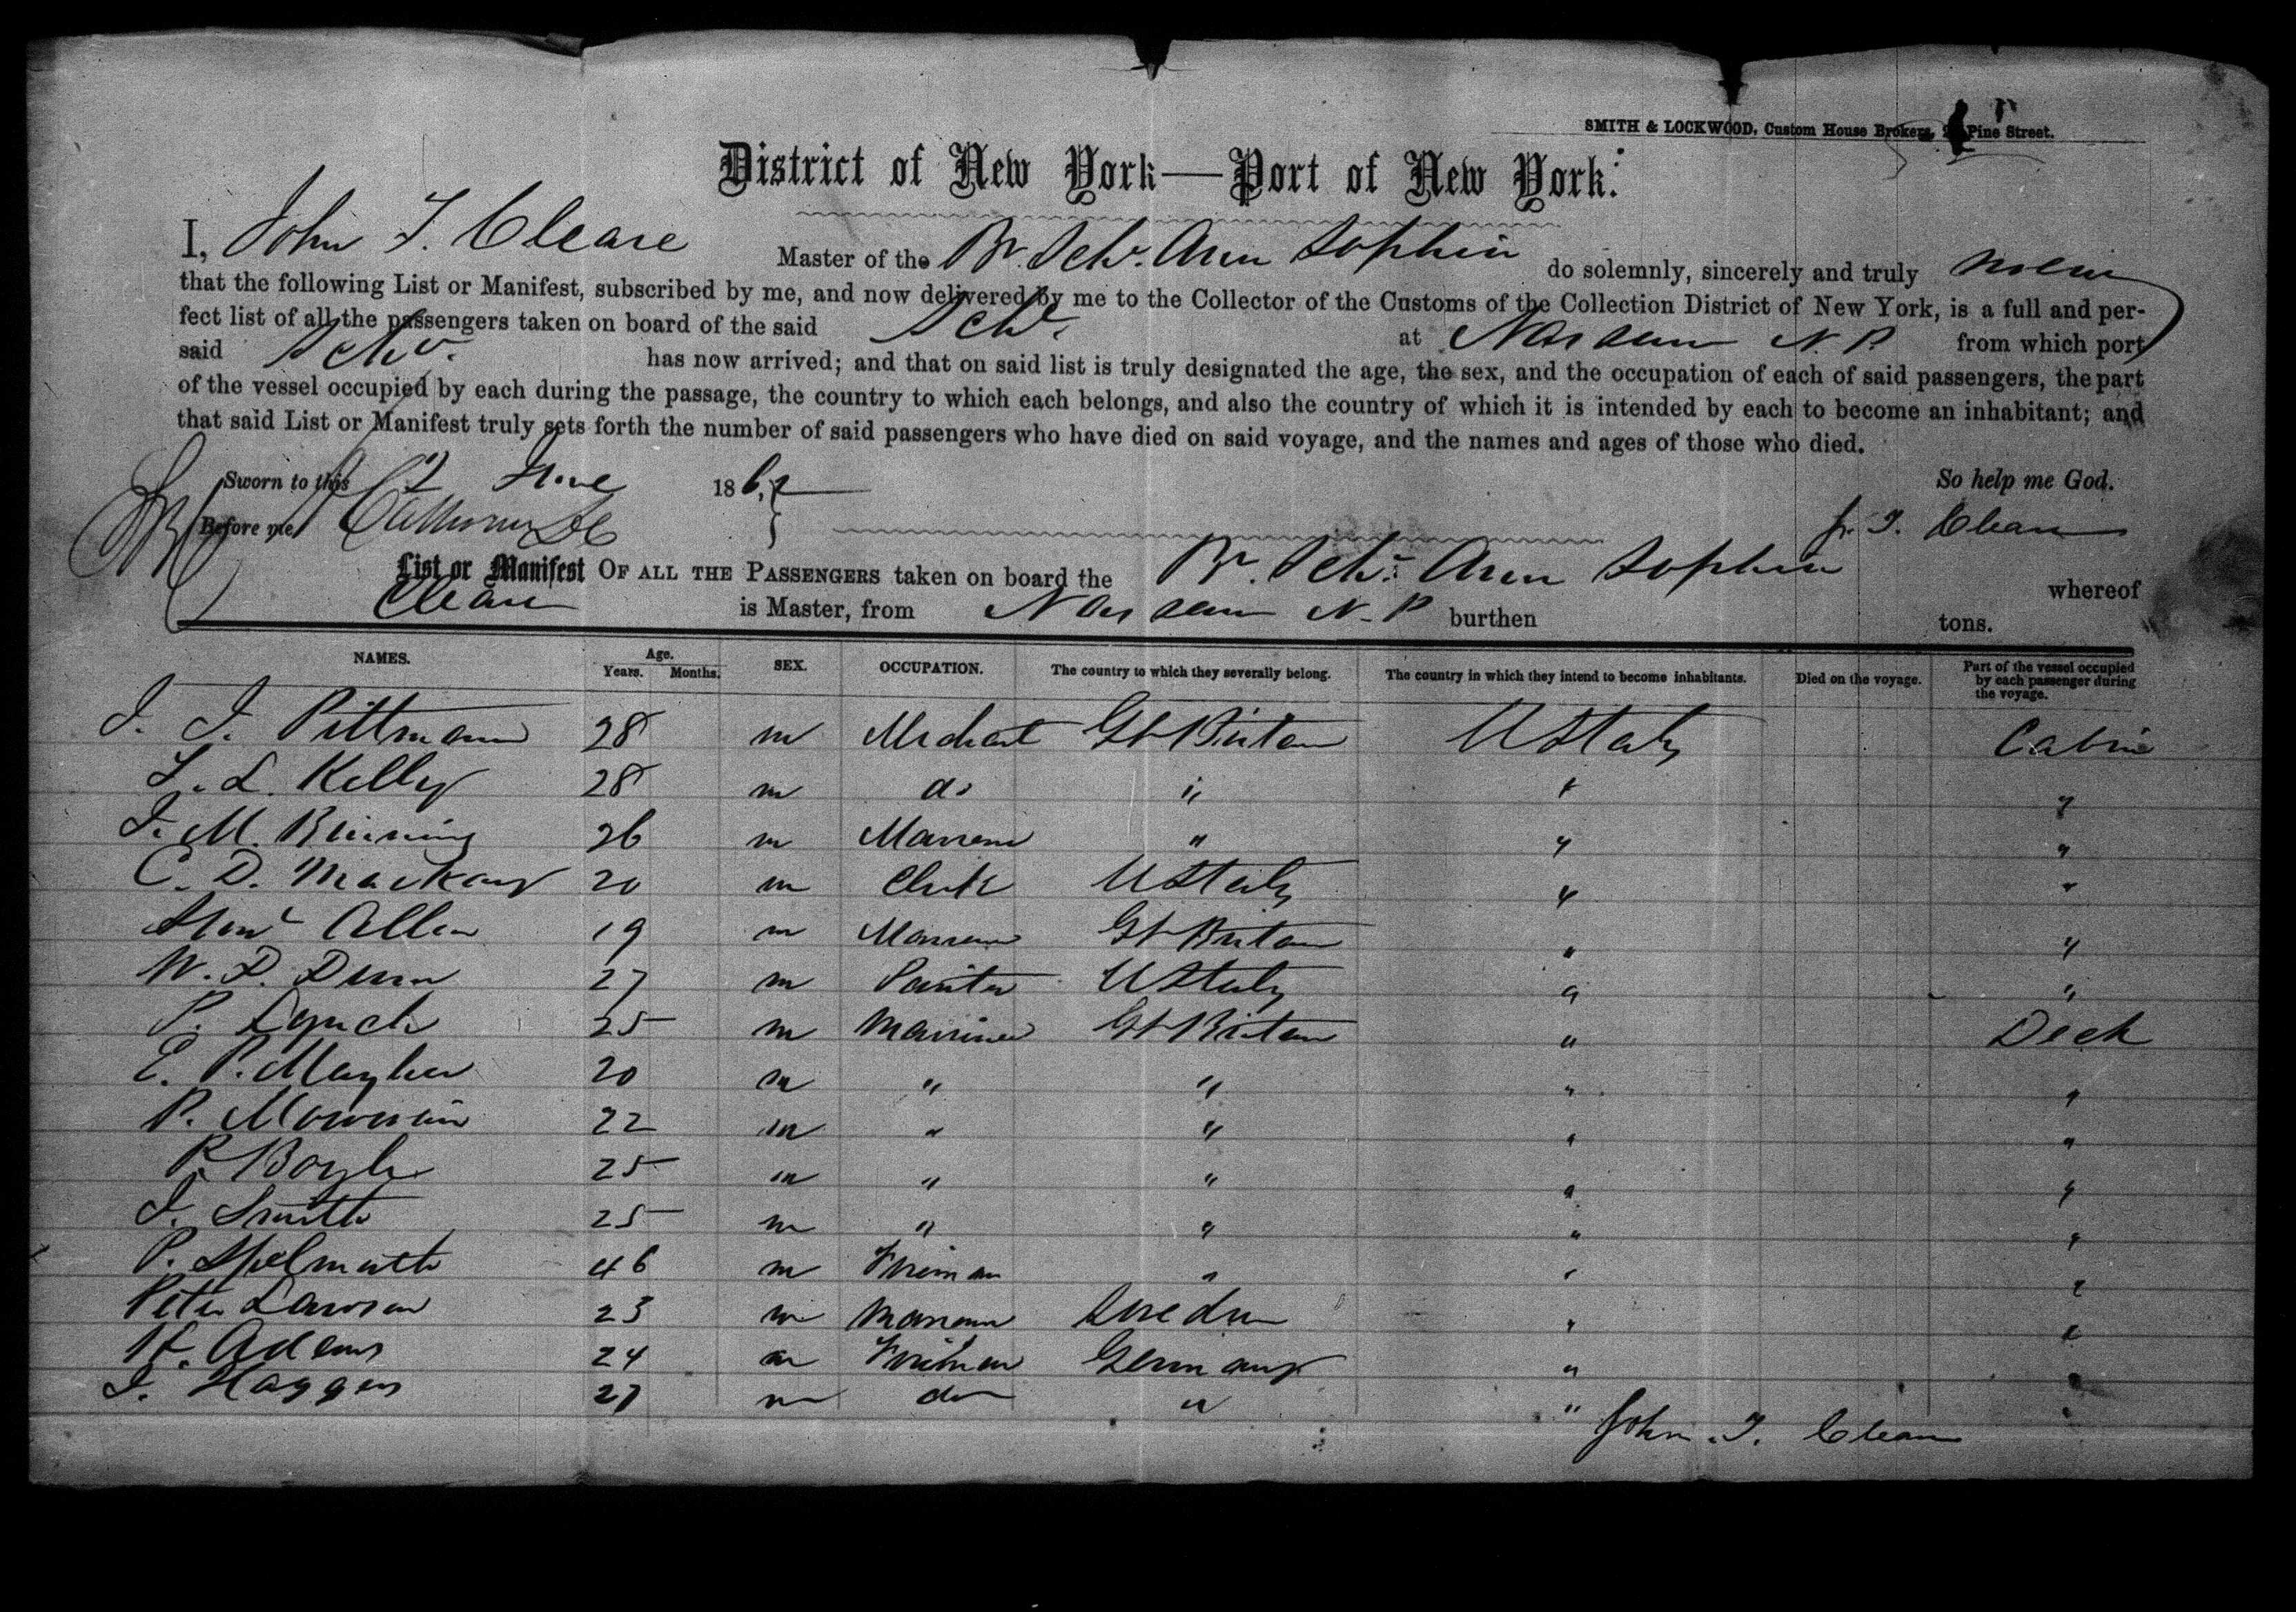 SMITH & LOCKWOOD, Custom House Brokers, Pine Street.
District of New York—Port of New York:
I, John T. Cleare Master of the Br. Schr. Ann Sophia do solemnly, sincerely and truly swear
that the following List or Manifest, subscribed by me, and now delivered by me to the Collector of the Customs of the Collection District of New York, is a full and per-
fect list of all the passengers taken on board of the said Schr. at Nassau N. P. from which port
said Schr. has now arrived; and that on said list is truly designated the age, the sex, and the occupation of each of said passengers, the part
of the vessel occupied by each during the passage, the country to which each belongs, and also the country of which it is intended by each to become an inhabitant; and
that said List or Manifest truly sets forth the number of said passengers who have died on said voyage, and the names and ages of those who died.
Sworn to this 186 So help me God.
Before me J. T. Cleare
List or Manifest OF ALL THE PASSENGERS taken on board the Br. Schr. Ann Sophia whereof
Cleare is Master, from Nassau N. P burthen tons.
NAMES. Age. Years. Months. SEX. OCCUPATION. The country to which they severally belong. The country in which they intend to become inhabitants. Died on the voyage. Part of the vessel occupied by each passenger during the voyage.
J. J. Pittman 28 m Merchant Gt Britain U States Cabin
L. Kelly 28 m do " " "
J. M. Binning 26 m Marriner " " "
C. D. Mackay 20 m Clerk U States " "
Allen 19 m Marriner Gt Britain " "
W. D. Dunn 27 m Painter U States " "
P. Lynch 25 m Marriner Gt Britain " Deck
E. P. Mayher 20 m " " " "
P. 22 m " " " "
P. Boyle 25 m " " " "
J. Smith 25 m " " " "
P. 46 m Fireman " " "
Peter Lawson 23 m Marriner Sweden " "
H. Adams 24 m Fireman Germany " "
J. Haggens 27 m do " " "
John. T. Cleare